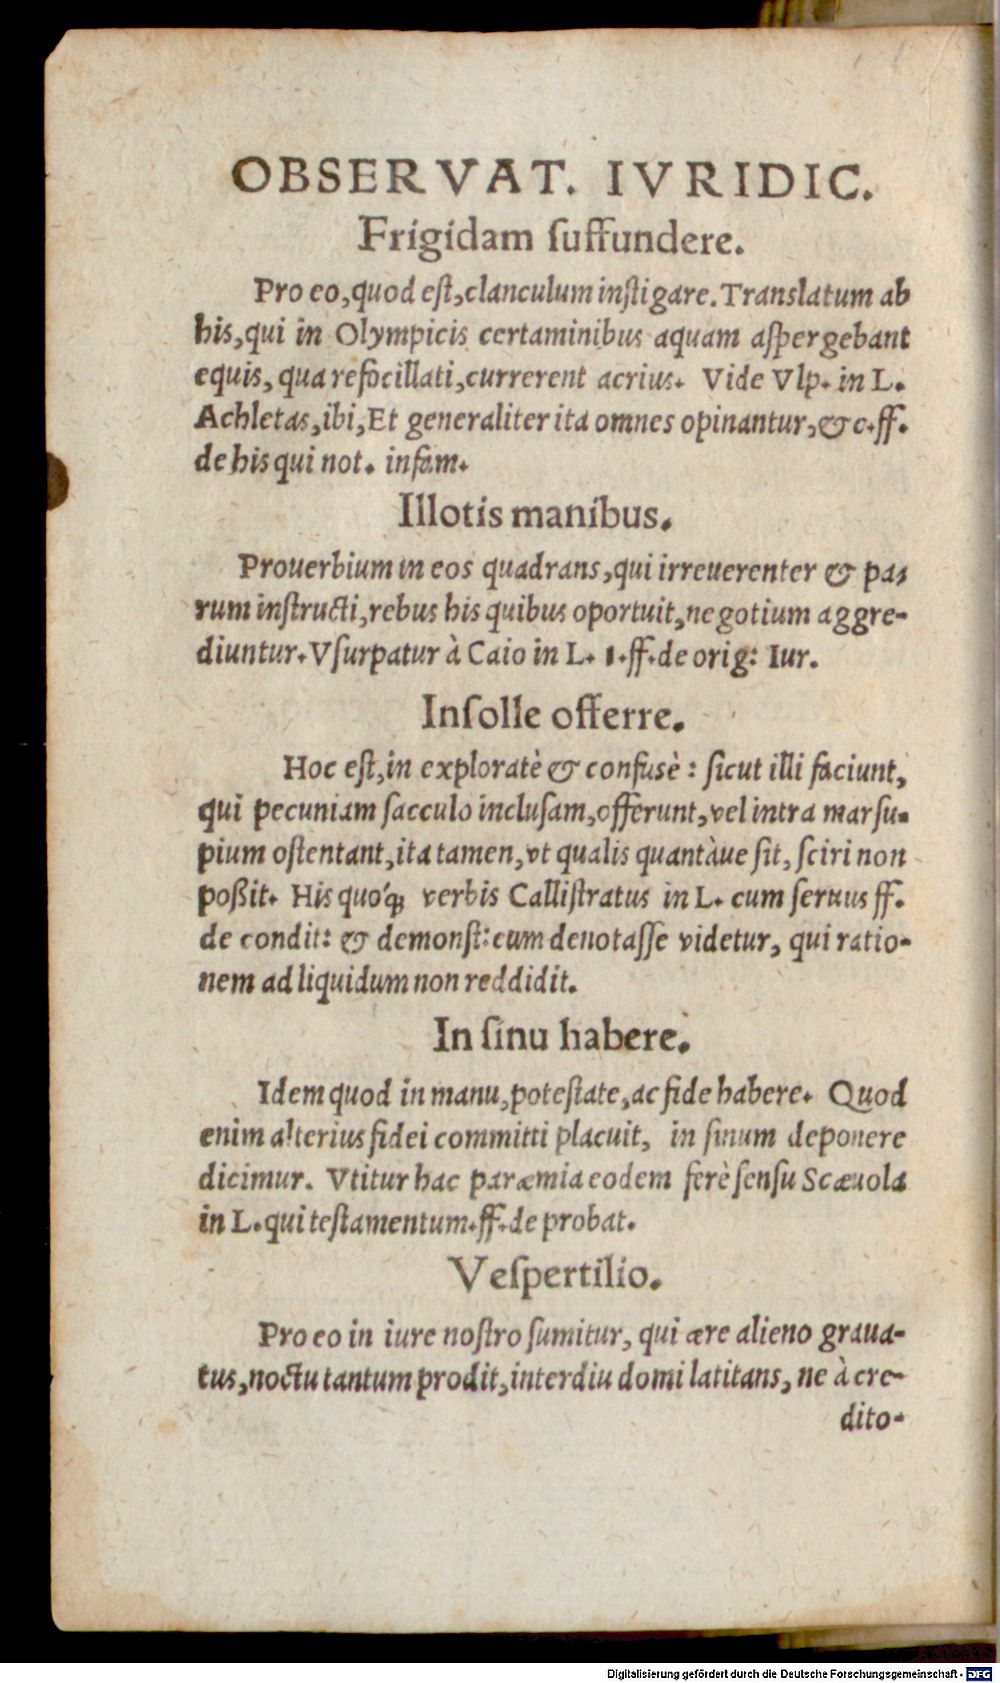 OBSERVAT. IVRIDIC.
Frigidam ſuffundere.
Pro eo, quod eſt, clanculum inſtigare. Translatum ab
his, qui in Olympicis certaminibus aquam aſpergebant
equis, qua refocillati, currerent acrius. Vide Vlp. in L.
Achletas, ibi, Et generaliter ita omnes opinantur, &c. ff.
de his qui not. infam.
Illotis manibus.
Prouerbium in eos quadrans, qui irreuerenter & pa-
rum inſtructi, rebus his quibus oportuit, negotium aggre-
diuntur. Vſurpatur à Caio in L. 1. ff. de orig: Iur.
Inſolle offerre.
Hoc eſt, in exploratè & confusè: ſicut illi faciunt,
qui pecuniam ſacculo incluſam, offerunt, vel intra marſu-
pium oſtentant, ita tamen, vt qualis quantàue ſit, ſciri non
poßit. His quoq́; verbis Calliſtratus in L. cum ſeruus ff.
de condit: & demonſt: eum denotaſſe videtur, qui ratio-
nem ad liquidum non reddidit.
In ſinu habere.
Idem quod in manu, poteſtate, ac fide habere. Quod
enim alterius fidei committi placuit, in ſinum deponere
dicimur. Vtitur hac paræmia eodem ferè ſenſu Scæuola
in L. qui teſtamentum. ff. de probat.
Veſpertilio.
Pro eo in iure noſtro ſumitur, qui ære alieno graua-
tus, noctu tantum prodit, interdiu domi latitans, ne à cre-
dito-
Digitalisierung gefördert durch die Deutsche Forschungsgemeinschaft - DFG